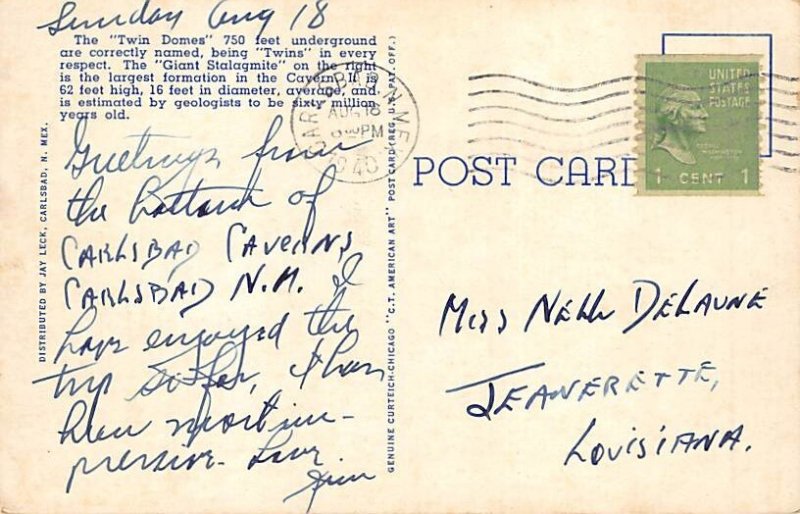 Sunday Aug 18
The "Twin Domes" 750 feet underground
are correctly named, being "Twins" in every
respect. The "Giant Stalagmite" on the right
is the largest formation in the Cavern. It is
62 feet high, 16 feet in diameter, average, and
is estimated by geologists to be sixty million
years old.
Greetings from
the bottom of
CARLSBAD CAVERNS
CARLSBAD N.M. I
have enjoyed the
trip so far, it has
been most im-
pressive. Love
Jim
DISTRIBUTED BY JAY LECK, CARLSBAD, N. MEX.
GENUINE CURTEICH-CHICAGO "C.T. AMERICAN ART" POST CARD (REG. U.S. PAT. OFF.)
CARLSBAD N. MEX.
AUG 18
PM
1940
POST CARD
UNITED
STATES
POSTAGE
GEORGE
WASHINGTON
1 CENT 1
MISS NELL DELAUNE
JEANERETTE,
LOUISIANA.